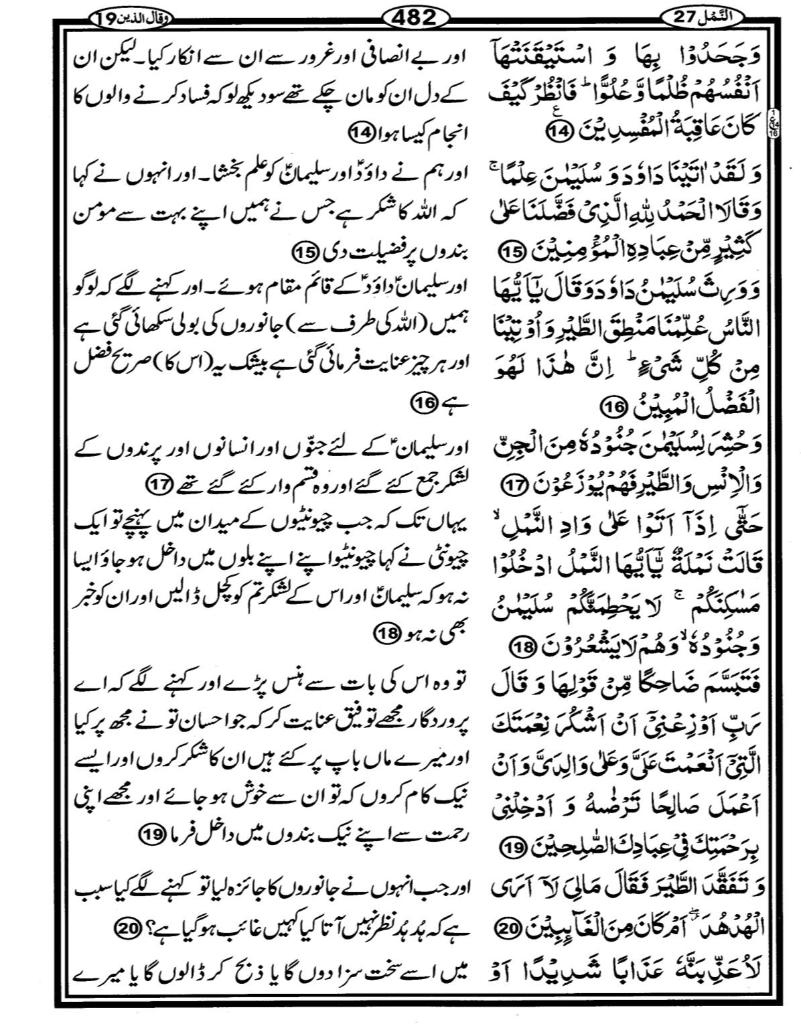 وقال الذین 19
482
النَّمْل 27
وَجَحَدُوْا بِهَا وَ اسْتَيْقَنَتْهَاۤ
اَنْفُسُهُمْ ظُلْمًا وَّعُلُوًّا ؕ فَانْظُرْ كَيْفَ
كَانَ عَاقِبَةُ الْمُفْسِدِيْنَ ۧ 14
وَ لَقَدْ اٰتَيْنَا دَاوٗدَ وَ سُلَيْمٰنَ عِلْمًا ۚ
وَقَالَا الْحَمْدُ لِلّٰهِ الَّذِيْ فَضَّلَنَا عَلٰى
كَثِيْرٍ مِّنْ عِبَادِهِ الْمُؤْمِنِيْنَ 15
وَوَرِثَ سُلَيْمٰنُ دَاوٗدَ وَقَالَ يٰۤاَيُّهَا
النَّاسُ عُلِّمْنَا مَنْطِقَ الطَّيْرِ وَاُوْتِيْنَا
مِنْ كُلِّ شَيْءٍ ؕ اِنَّ هٰذَا لَهُوَ
الْفَضْلُ الْمُبِيْنُ 16
وَحُشِرَ لِسُلَيْمٰنَ جُنُوْدُهٗ مِنَ الْجِنِّ
وَالْاِنْسِ وَالطَّيْرِ فَهُمْ يُوْزَعُوْنَ 17
حَتّٰۤى اِذَاۤ اَتَوْا عَلٰى وَادِ النَّمْلِ ۙ
قَالَتْ نَمْلَةٌ يّٰۤاَيُّهَا النَّمْلُ ادْخُلُوْا
مَسٰكِنَكُمْ ۚ لَا يَحْطِمَنَّكُمْ سُلَيْمٰنُ
وَجُنُوْدُهٗ ۙ وَهُمْ لَا يَشْعُرُوْنَ 18
فَتَبَسَّمَ ضَاحِكًا مِّنْ قَوْلِهَا وَ قَالَ
رَبِّ اَوْزِعْنِيْۤ اَنْ اَشْكُرَ نِعْمَتَكَ
الَّتِيْۤ اَنْعَمْتَ عَلَيَّ وَعَلٰى وَالِدَيَّ وَاَنْ
اَعْمَلَ صَالِحًا تَرْضٰىهُ وَ اَدْخِلْنِيْ
بِرَحْمَتِكَ فِيْ عِبَادِكَ الصّٰلِحِيْنَ 19
وَ تَفَقَّدَ الطَّيْرَ فَقَالَ مَالِيَ لَاۤ اَرَى
الْهُدْهُدَ ۖ اَمْ كَانَ مِنَ الْغَآىِٕبِيْنَ 20
لَاُعَذِّبَنَّهٗ عَذَابًا شَدِيْدًا اَوْ
اور بے انصافی اور غرور سے ان سے انکار کیا۔ لیکن ان
کے دل ان کو مان چکے تھے سو دیکھ لو کہ فساد کرنے والوں کا
انجام کیسا ہوا 14
اور ہم نے داؤدؑ اور سلیمانؑ کو علم بخشا۔ اور انہوں نے کہا
کہ اللہ کا شکر ہے جس نے ہمیں اپنے بہت سے مومن
بندوں پر فضیلت دی 15
اور سلیمانؑ داؤدؑ کے قائم مقام ہوئے۔ اور کہنے لگے کہ لوگو
ہمیں (اللہ کی طرف سے) جانوروں کی بولی سکھائی گئی ہے
اور ہر چیز عنایت فرمائی گئی ہے بیشک یہ (اس کا) صریح فضل
ہے 16
اور سلیمانؑ کے لئے جنّوں اور انسانوں اور پرندوں کے
لشکر جمع کئے گئے اور وہ قسم وار کئے گئے تھے 17
یہاں تک کہ جب چیونٹیوں کے میدان میں پہنچے تو ایک
چیونٹی نے کہا چیونٹیو اپنے اپنے بلوں میں داخل ہو جاؤ ایسا
نہ ہو کہ سلیمانؑ اور اس کے لشکر تم کو کچل ڈالیں اور ان کو خبر
بھی نہ ہو 18
تو وہ اس کی بات سے ہنس پڑے اور کہنے لگے کہ اے
پروردگار مجھے توفیق عنایت کر کہ جو احسان تو نے مجھ پر کیا
اور میرے ماں باپ پر کئے ہیں ان کا شکر کروں اور ایسے
نیک کام کروں کہ تو ان سے خوش ہو جائے اور مجھے اپنی
رحمت سے اپنے نیک بندوں میں داخل فرما 19
اور جب انہوں نے جانوروں کا جائزہ لیا تو کہنے لگے کیا سبب
ہے کہ ہُدہُد نظر نہیں آتا کیا کہیں غائب ہو گیا ہے؟ 20
میں اسے سخت سزا دوں گا یا ذبح کر ڈالوں گا یا میرے